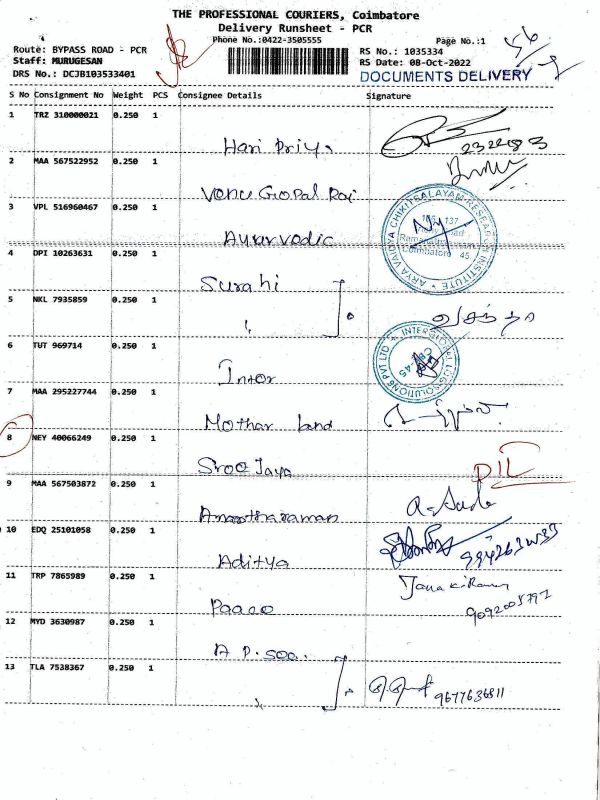 THE PROFESSIONAL COURIERS, Coimbatore
Delivery Runsheet - PCR
Phone No.:0422-3505555
Page No.:1
Route: BYPASS ROAD - PCR
Staff: MURUGESAN
DRS No.: DCJB103533401
RS No.: 1035334
RS Date: 08-Oct-2022
DOCUMENTS DELIVERY
S No Consignment No Weight PCS Consignee Details Signature
1 TRZ 310000021 0.250 1
Hari Priya
2 MAA 567522952 0.250 1
Venu Gopal Raj
3 VPL 516960467 0.250 1
Ayurvedic
ARYA VAIDYA CHIKITSALAYAM RESEARCH INSTITUTE
Coimbatore 45.
4 DPI 10263631 0.250 1
Surahi
5 NKL 7935859 0.250 1
வசந்தா
6 TUT 969714 0.250 1
Intor
7 MAA 295227744 0.250 1
Mothar land
8 NEY 40066249 0.250 1
Sroo Jaya
D/L
9 MAA 567503872 0.250 1
Anantharaman
10 EDQ 25101058 0.250 1
Aditya
11 TRP 7865989 0.250 1
Janakiraman
Paaco
9092005792
12 MYD 3630987 0.250 1
A P. Soo.
13 TLA 7538367 0.250 1
9677636811